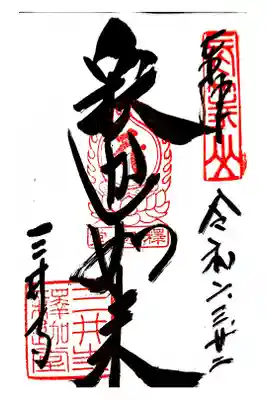 奉拝
令和六.三.廿二
釈迦如来
三井寺
三井寺
釋迦堂